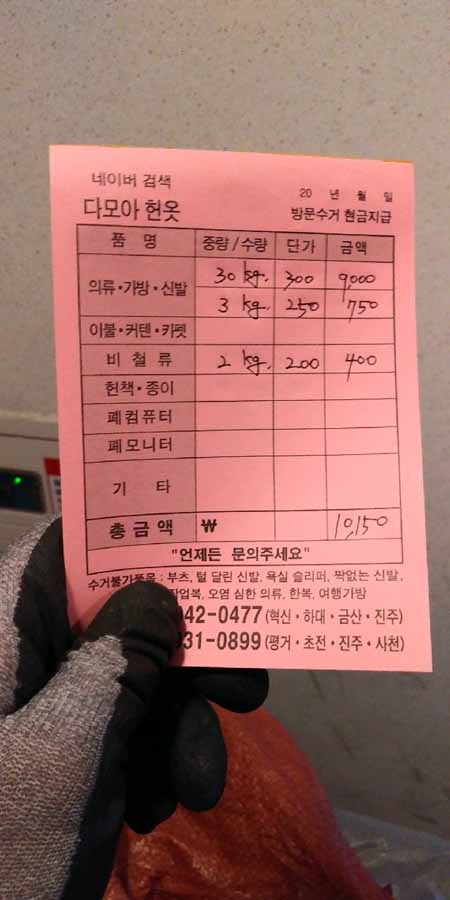 네이버 검색
다모아 헌옷
20 년 월 일
방문수거 현금지급
품 명 중량/수량 단가 금액
의류·가방·신발 30 kg. 300 9,000
3 kg. 250 750
이불·커텐·카펫
비 철 류 2 kg. 200 400
헌책·종이
폐컴퓨터
폐모니터
기 타
총 금 액 ₩ 10,150
"언제든 문의주세요"
수거불가품목 : 부츠, 털 달린 신발, 욕실 슬리퍼, 짝없는 신발,
작업복, 오염 심한 의류, 한복, 여행가방
042-0477 (혁신·하대·금산·진주)
931-0899 (평거·초전·진주·사천)